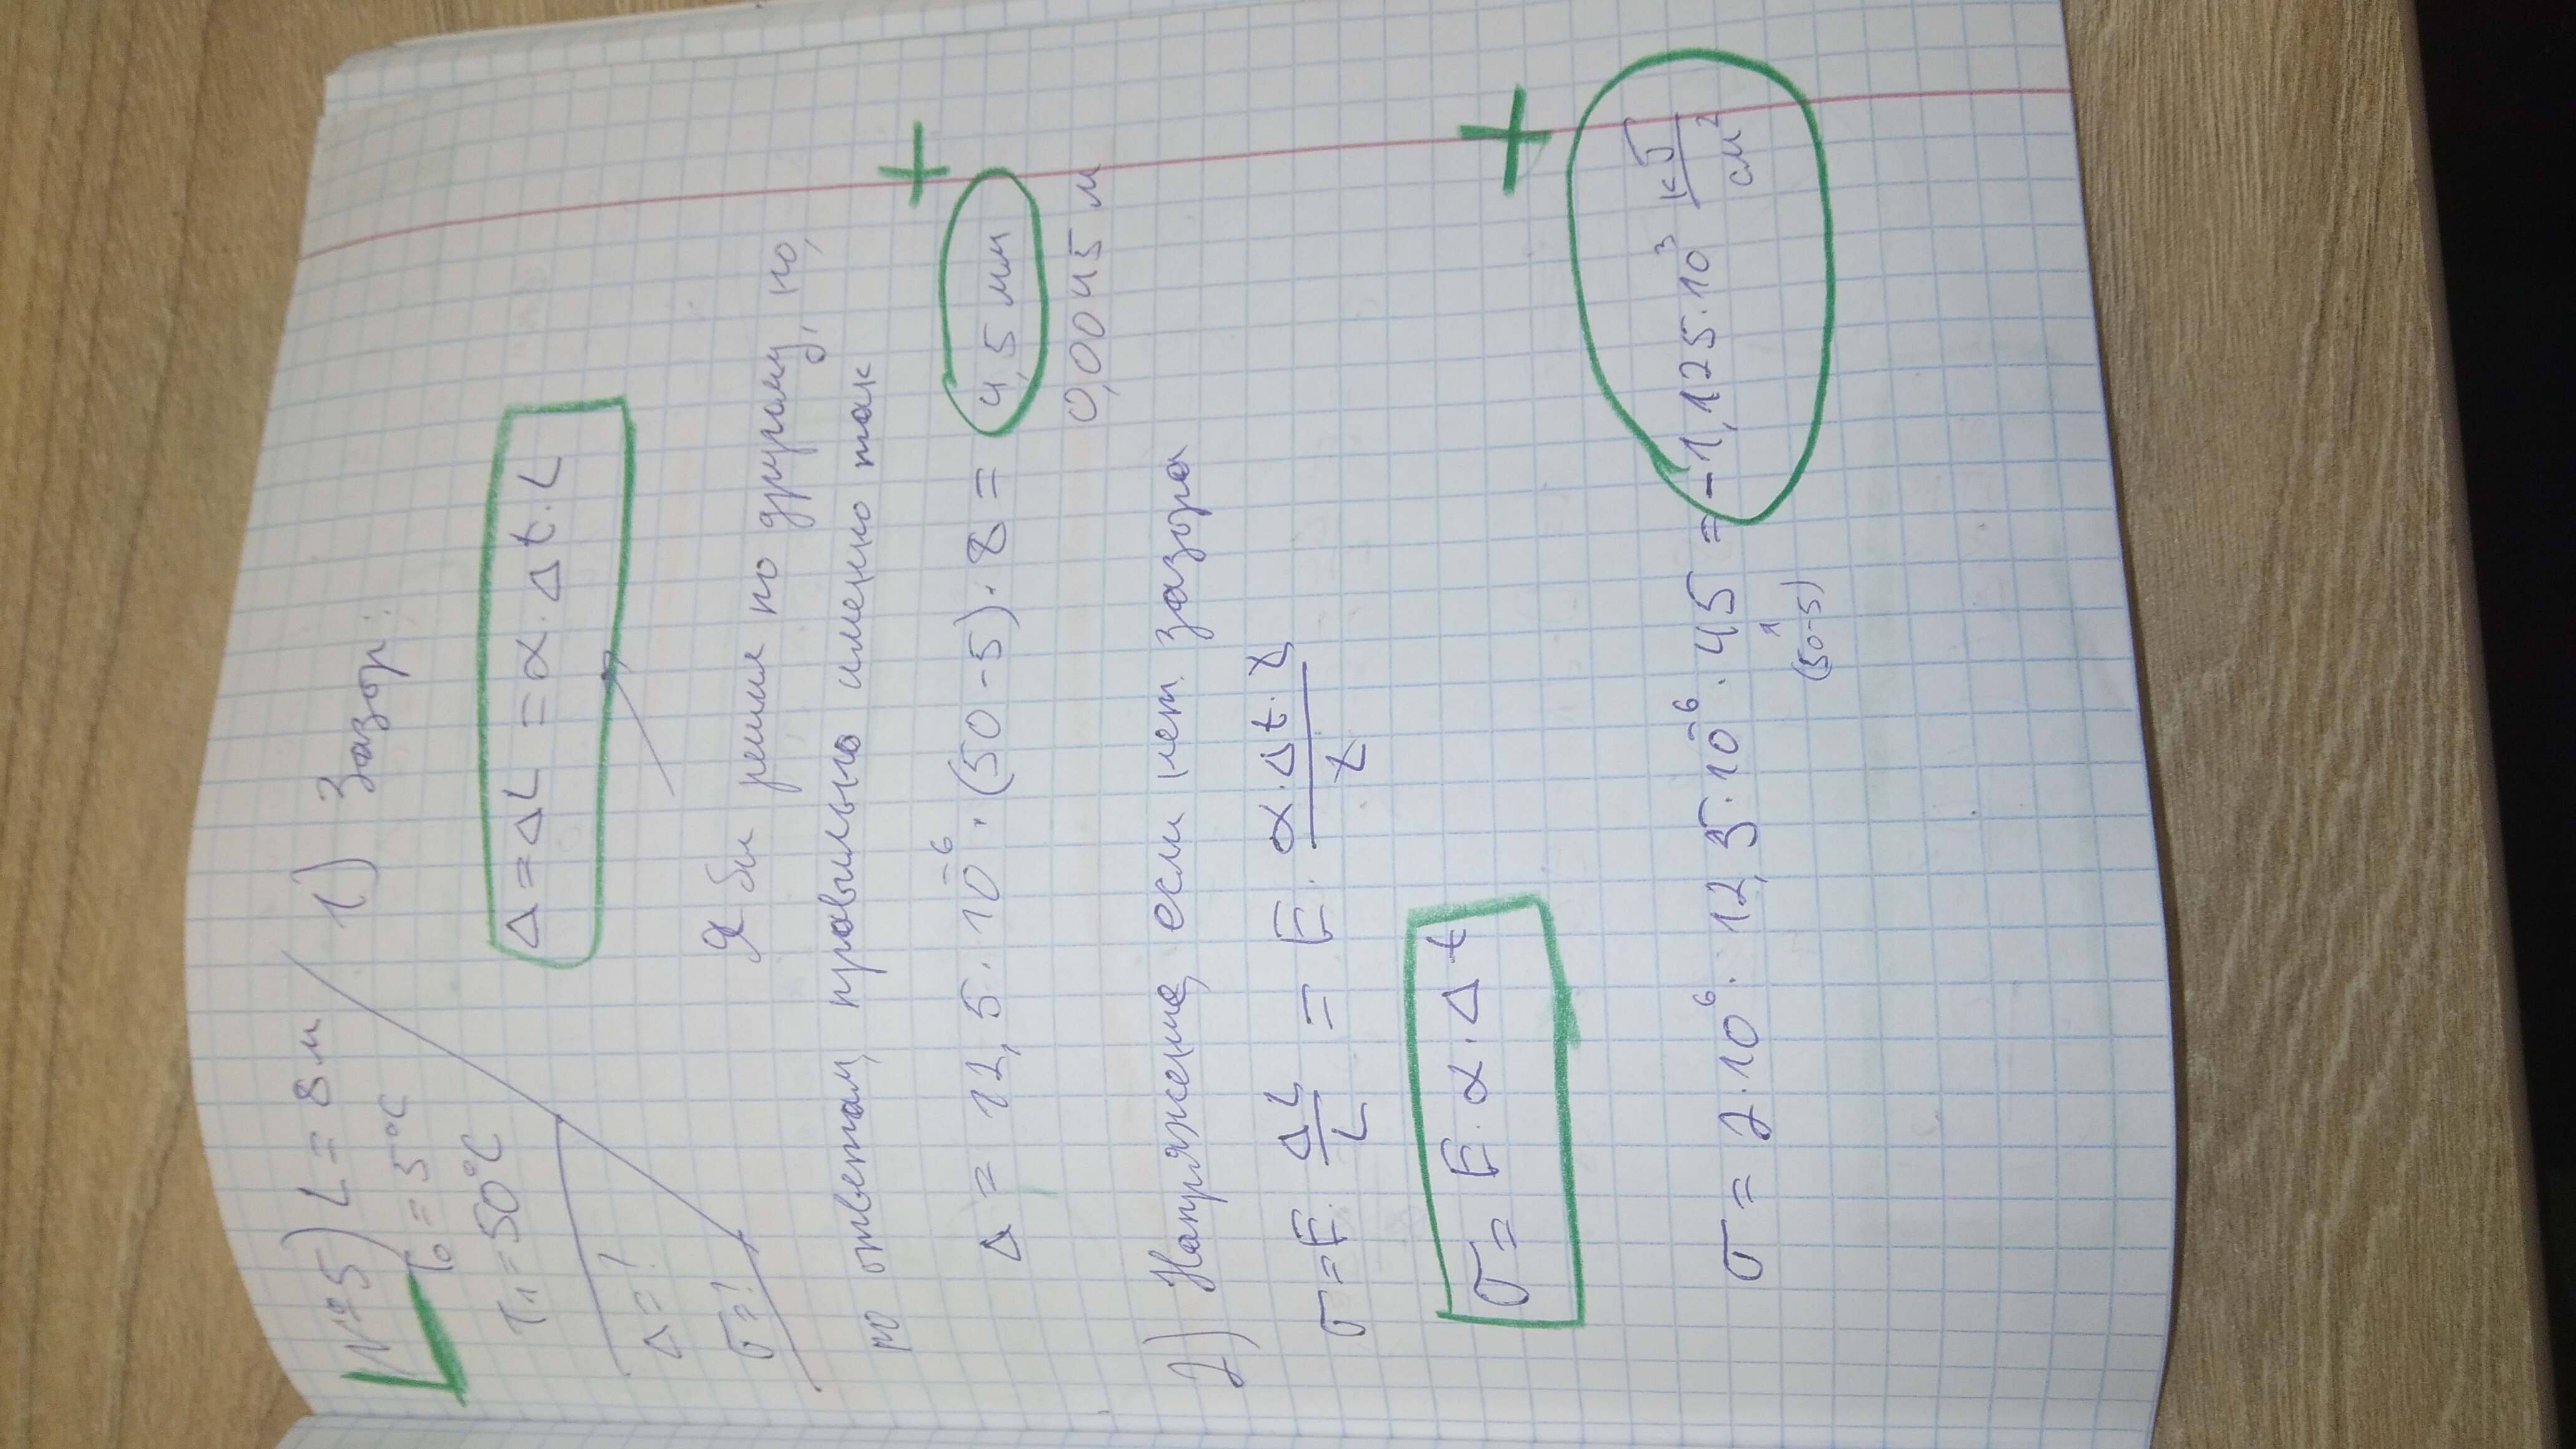 №5) L = 8м
T₀ = 5°C
T₁ = 50°C
Δ = !
σ = !
1) Зазор:
Δ = ΔL = α · Δt · L
Я бы решил по другому, но,
по ответам, правильно именно так
Δ = 12,5 · 10⁻⁶ · (50 - 5) · 8 = 4,5 мм
0,0045 м
2) Напряжение, если нет зазора
σ = E · ΔL/L = E · α·Δt·L/L
σ = E · α · Δt
σ = 2·10⁶ · 12,5·10⁻⁶ · 45 = -1,125·10³ кГ/см²
(50-5)